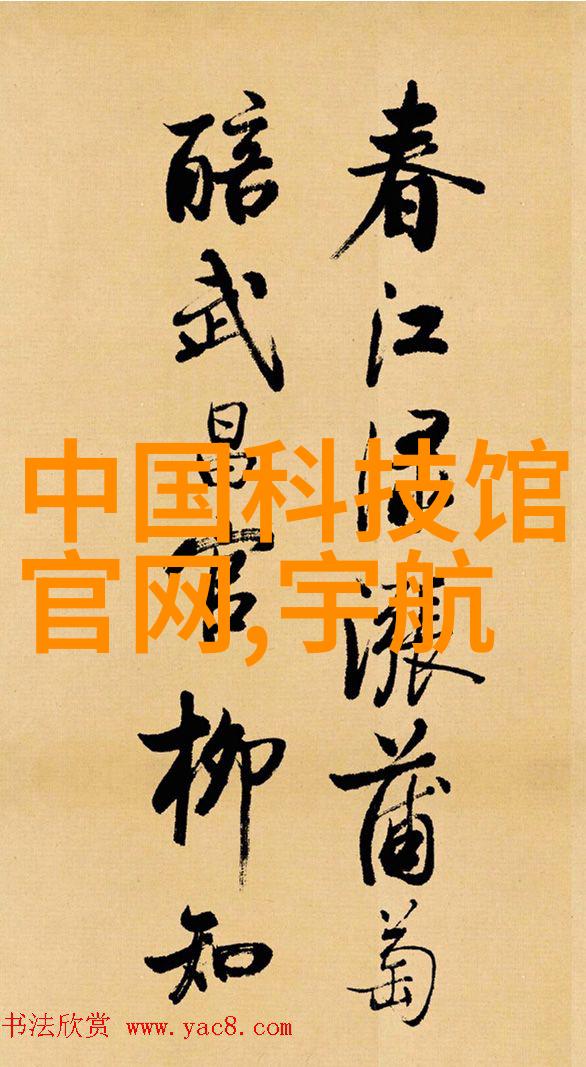 春江渌涨蒲萄
醅武昌官柳知
中国科技馆
官网,宇航
书法欣赏 www.yac8.com